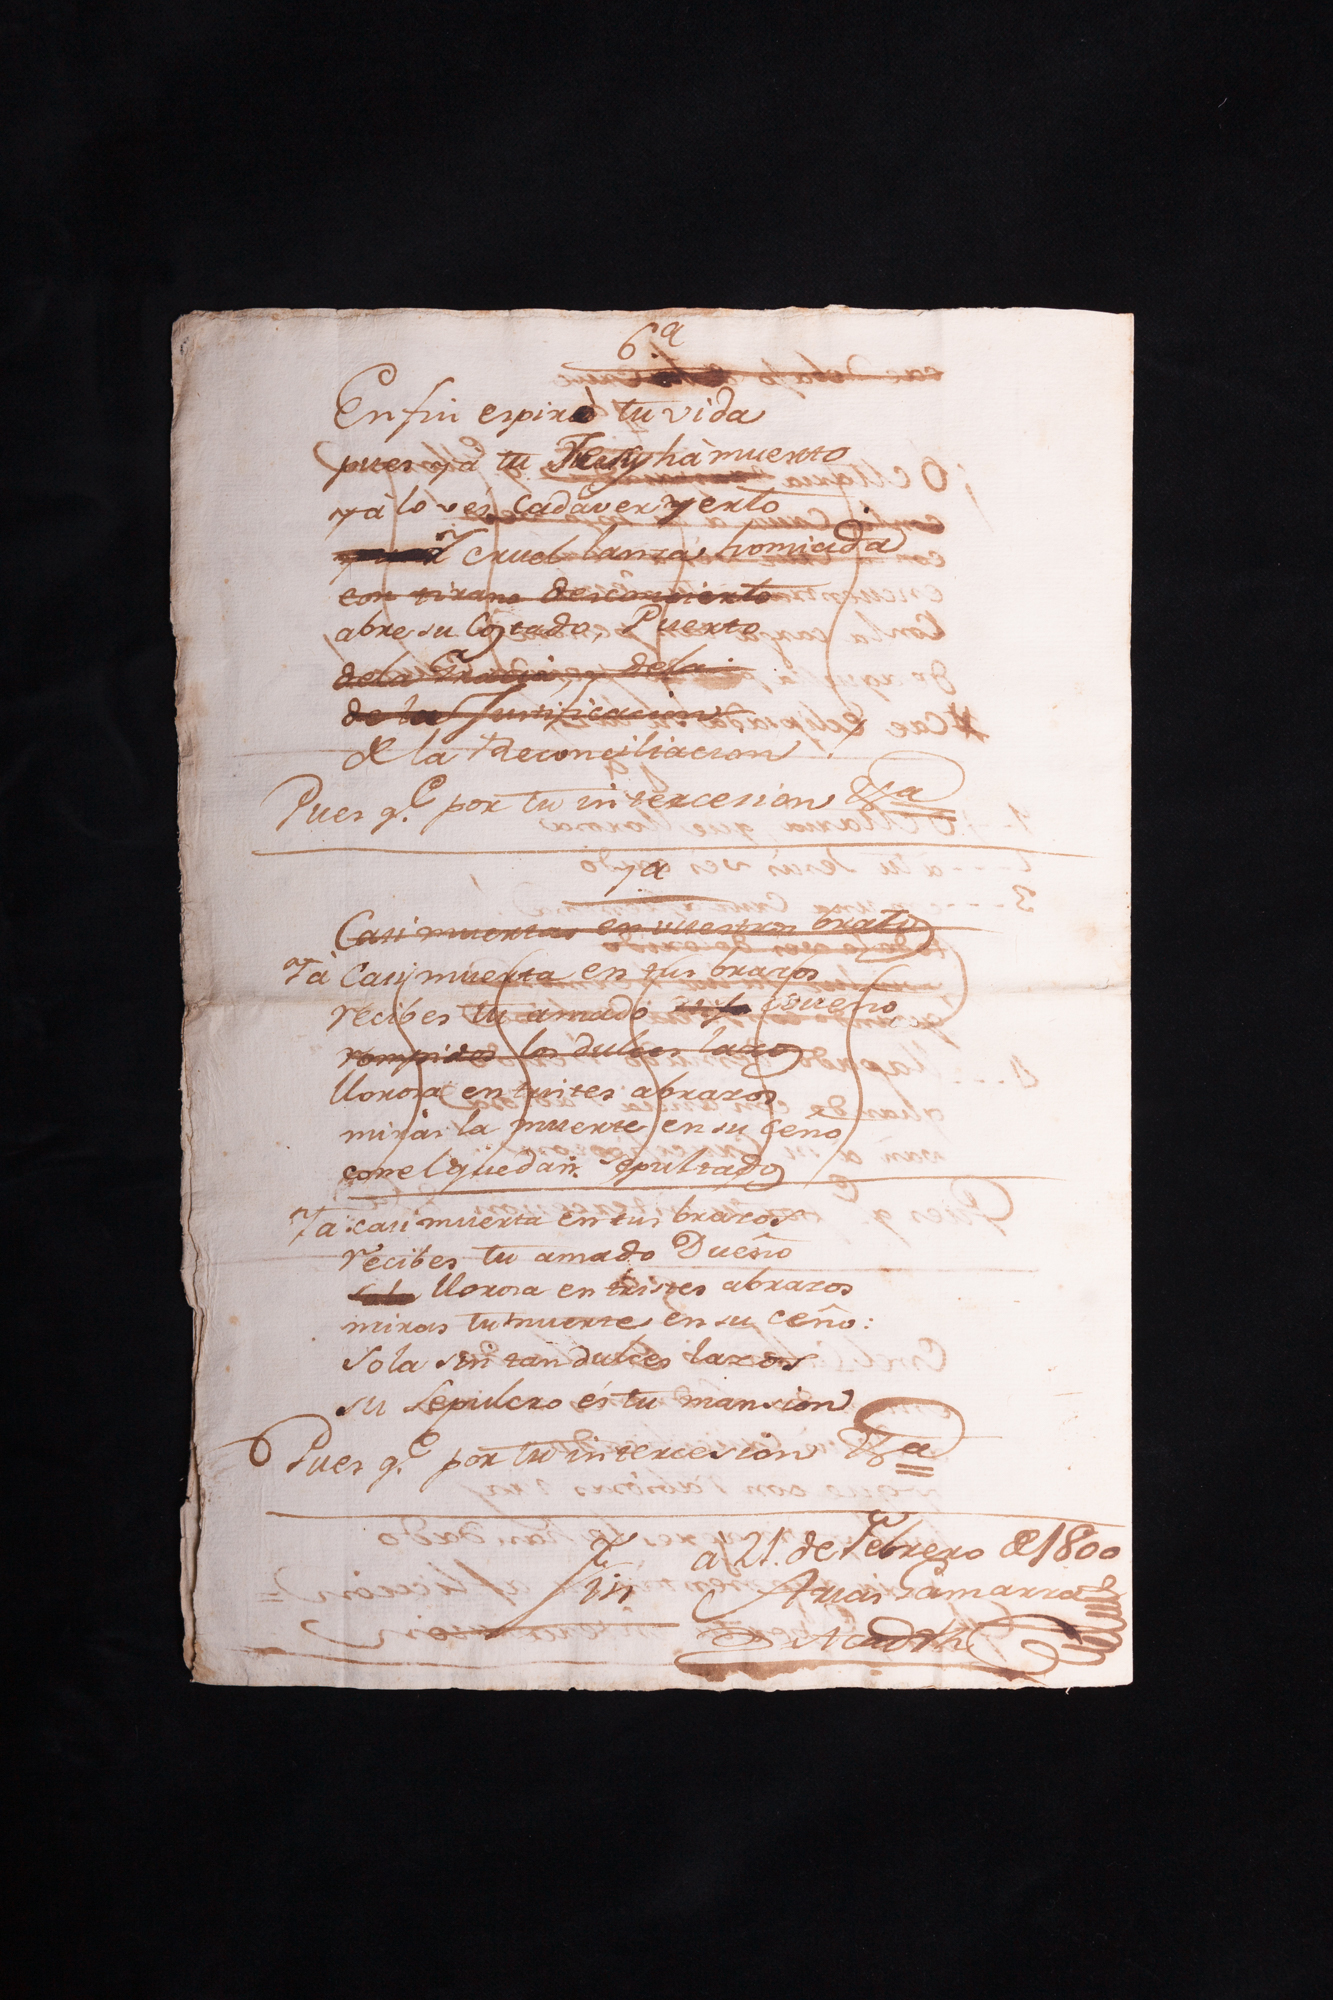 6ª
En fin espiró tu vida
pues ya tu Jesus ha muerto
ya lo ves Cadaver yerto
cruel lanza homicida
con tirano desconcierto
abre su Costado, Puerto
de la Gracia, y de la
de la Justificacion
de la Reconciliacion
Pues q.e por tu intercesion &a
7a
Casi muerta en vuestros brazos
Ya casi muerta en tus brazos
recibes tu amado Dueño
rompidos los dulces lazos
llorosa en tristes abrazos
miras la muerte en su ceño
con el quedan sepultados
Ya casi muerta en tus brazos
recibes tu amado Dueño
llorosa en tristes abrazos
miras tu muerte en su ceño:
sola sin tan dulces lazos
su sepulcro és tu mansion
Pues q.e por tu intercesion &a
Fin
a 21. de Febrero de 1800
Arias Gamarra